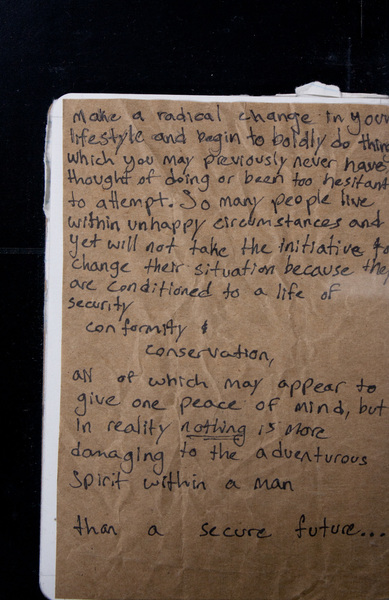 make a radical change in your
lifestyle and begin to boldly do thin
which you may previously never have
thought of doing or been too hesitant
to attempt. So many people live
within unhappy circumstances and
yet will not take the initiative to
change their situation because they
are conditioned to a life of
security
conformity &
conservation,
all of which may appear to
give one peace of mind, but
in reality nothing is more
damaging to the adventurous
spirit within a man
than a secure future...